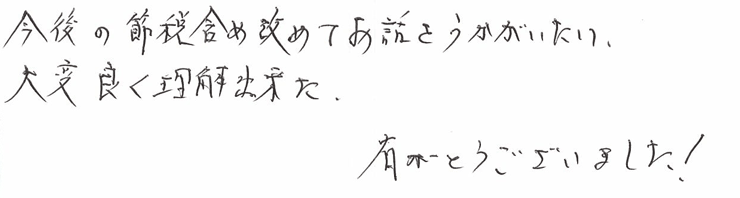 今後の節税含め改めてお話をうかがいたい、
大変良く理解出来た.
有がとうございました!